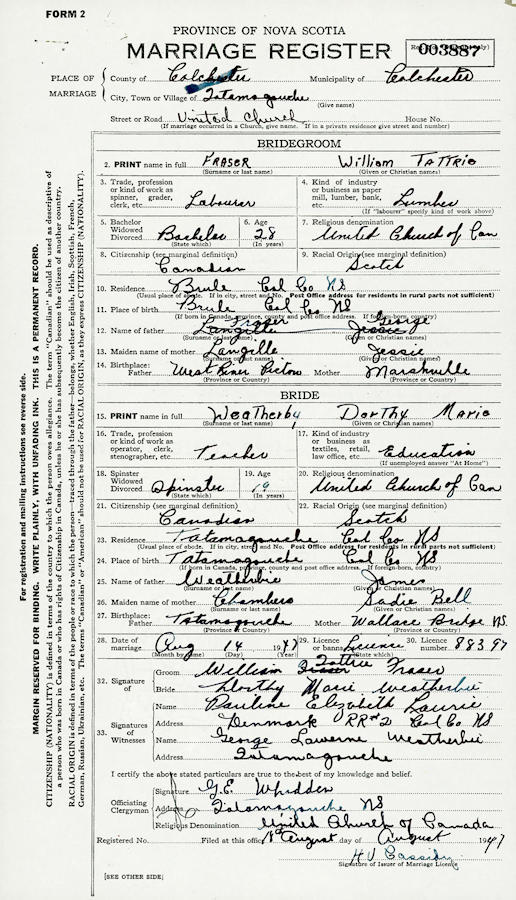 FORM 2
PROVINCE OF NOVA SCOTIA
MARRIAGE REGISTER
003887
PLACE OF MARRIAGE
County of Colchester Municipality of Colchester
City, Town or Village of Tatamagouche
(Give name)
Street or Road United Church House No.
(If marriage occurred in a Church, give name. If in a private residence give street and number)
BRIDEGROOM
2. PRINT name in full FRASER William TATTRIE
(Surname or last name) (Given or Christian names)
3. Trade, profession or kind of work as spinner, grader, clerk, etc. Labourer
4. Kind of industry or business as paper mill, lumber, bank, etc. Lumber
(If "labourer" specify kind of work above)
5. Bachelor Widowed Divorced Bachelor (State which)
6. Age 28 (In years)
7. Religious denomination United Church of Can
8. Citizenship (see marginal definition) Canadian
9. Racial Origin (see marginal definition) Scotch
10. Residence Brule Col Co NS
(Usual place of abode. If in city, street and No. Post Office address for residents in rural parts not sufficient)
11. Place of birth Brule Col Co NS
(If born in Canada, province, county and post office address. If foreign-born, country)
12. Name of father Langille Fraser Jessie George
(Surname or last name) (Given or Christian names)
13. Maiden name of mother Langille Jessie
(Surname or last name) (Given or Christian names)
14. Birthplace: Father West River Pictou Mother Marshville
(Province or Country) (Province or Country)
BRIDE
15. PRINT name in full Weatherby Dorthy Marie
(Surname or last name) (Given or Christian names)
16. Trade, profession or kind of work as operator, clerk, stenographer, etc. Teacher
17. Kind of industry or business as textiles, retail, law office, etc. Education
(If unemployed answer "At Home")
18. Spinster Widowed Divorced Spinster (State which)
19. Age 19 (In years)
20. Religious denomination United Church of Can
21. Citizenship (see marginal definition) Canadian
22. Racial Origin (see marginal definition) Scotch
23. Residence Tatamagouche Col Co NS
(Usual place of abode. If in city, street and No. Post Office address for residents in rural parts not sufficient)
24. Place of birth Tatamagouche Col Co NS
(If born in Canada, province, county and post office address. If foreign-born, country)
25. Name of father Weatherbie James
(Surname or last name) (Given or Christian names)
26. Maiden name of mother Chambers Sadie Bell
(Surname or last name) (Given or Christian names)
27. Birthplace: Father Tatamagouche Mother Wallace Bridge NS.
(Province or Country) (Province or Country)
28. Date of marriage Aug 14 1947 29. Licence or banns Licence 30. Licence number 88397
(Month by name) (Day) (Year) (State which)
32. Signature of
Groom William Fraser Tattrie Fraser
Bride Dorthy Marie Weatherbie
33. Signatures of Witnesses
Name Pauline Elizabeth Laurie
Address Denmark RR#2 Col Co NS
Name George Lawerne Weatherbie
Address Tatamagouche
I certify the above stated particulars are true to the best of my knowledge and belief.
Officiating Clergyman
Signature G.E. Whidden
Address Tatamagouche NS
Religious Denomination United Church of Canada
Registered No. Filed at this office 18 August day of August 1947
H V Cassidy
Signature of Issuer of Marriage Licence
[SEE OTHER SIDE]
For registration and mailing instructions see reverse side.
MARGIN RESERVED FOR BINDING. WRITE PLAINLY, WITH UNFADING INK. THIS IS A PERMANENT RECORD.
CITIZENSHIP (NATIONALITY) is defined in terms of the country to which the person owes allegiance. The term "Canadian" should be used as descriptive of
a person who was born in Canada or who has rights of Citizenship in Canada, unless he or she has subsequently become the citizen of another country.
RACIAL ORIGIN is defined in terms of the people or race to which the person—traced through the father—belongs, whether English, Irish, Scottish, French,
German, Russian, Ukrainian, etc. The terms "Canadian" or "American" should not be used for RACIAL ORIGIN, as they express CITIZENSHIP (NATIONALITY).